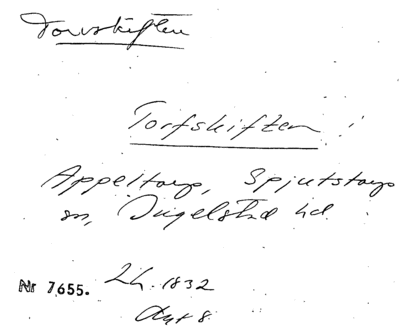 Torvskiften
Torfskiften
Appeltorp, Spjutstorp
sn, Ingelstad hd.
Nr 7655. LH. 1832
Akt 8.